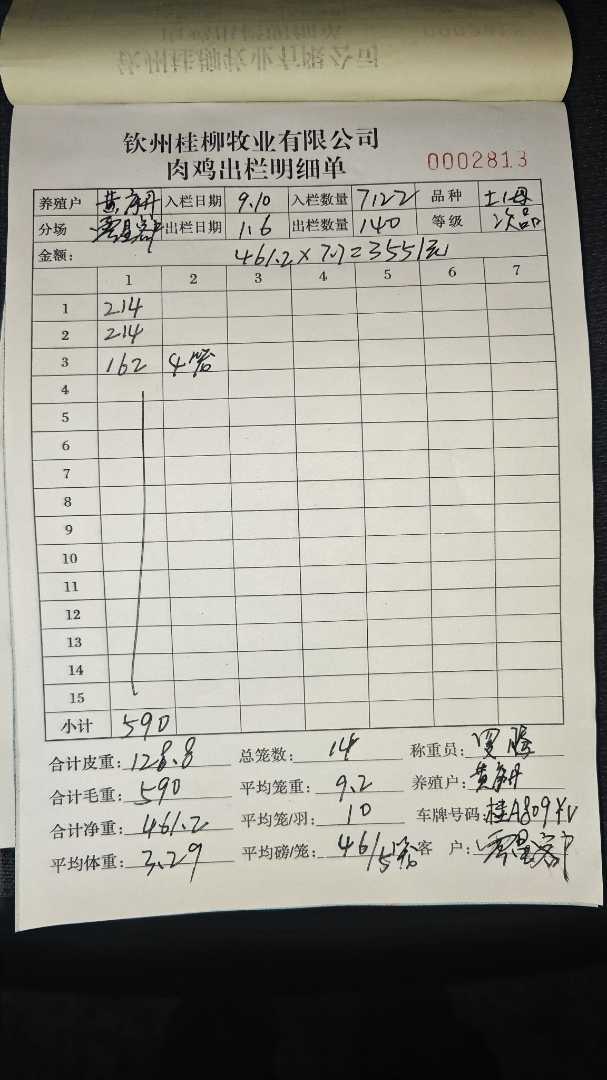 钦州桂柳牧业有限公司
肉鸡出栏明细单 0002813
养殖户 黄 入栏日期 9.10 入栏数量 7122 品种 土母
分场 零星客户 出栏日期 1.6 出栏数量 140 等级 次品
金额: 461.2×7.7=3551元
1 2 3 4 5 6 7
1 214
2 214
3 162 4笼
4
5
6
7
8
9
10
11
12
13
14
15
小计 590
合计皮重: 128.8 总笼数: 14 称重员:
合计毛重: 590 平均笼重: 9.2 养殖户: 黄
合计净重: 461.2 平均笼/羽: 10 车牌号码: 桂A809YV
平均体重: 3.29 平均磅/笼: 46/5笼 客 户: 零星客户